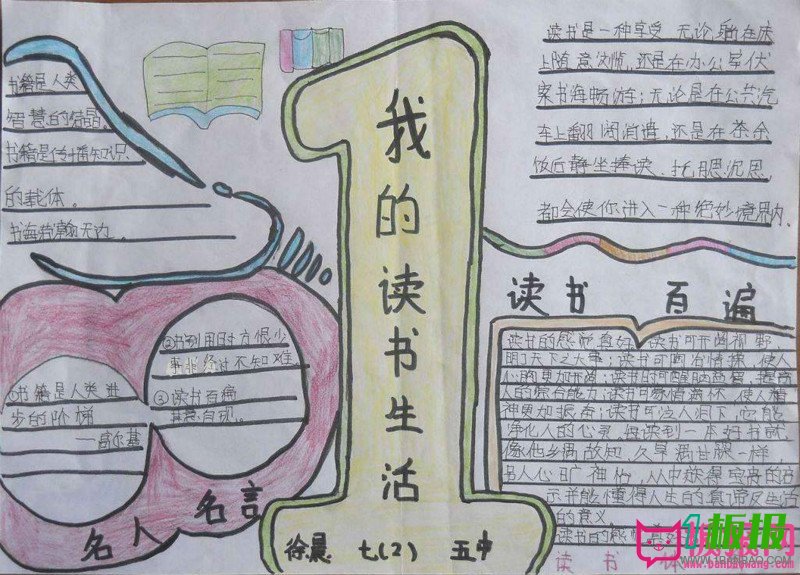 书籍是人类
智慧的结晶
书籍是传播知识
的载体。
书海邦瀚无边。
我的读书生活
徐晨 七(2) 五中
读书是一种享受 无论躺在床
上随意浏览,还是在办公室伏
案书海畅游;无论是在公共汽
车上翻阅消遣,还是在茶余
饭后静坐捧读、托腮沉思,
都会使你进入一种绝妙境界内.
读书 百遍
读书的感觉真好。读书可开阔视野,
明了天下之大事;读书可陶冶情操,使人
心胸更加开阔;读书时可醒脑益智,提高
人的综合能力;读书可豪情满怀,使人精
神更加振奋;读书可泣人泪下,也能
净化人的心灵,每读到一本好书就
像他乡遇故知,久旱逢甘霖一样
另人心旷神怡,从中获得宝贵的启
示并能懂得人生的真谛及生活
的意义
读书的感觉真好
读书
②书到用时方恨少
事非经过不知难
③读书百遍
其意自现。
①书籍是人类进
步的阶梯
——高尔基
名人名言
板报网
www.banbaowang.com